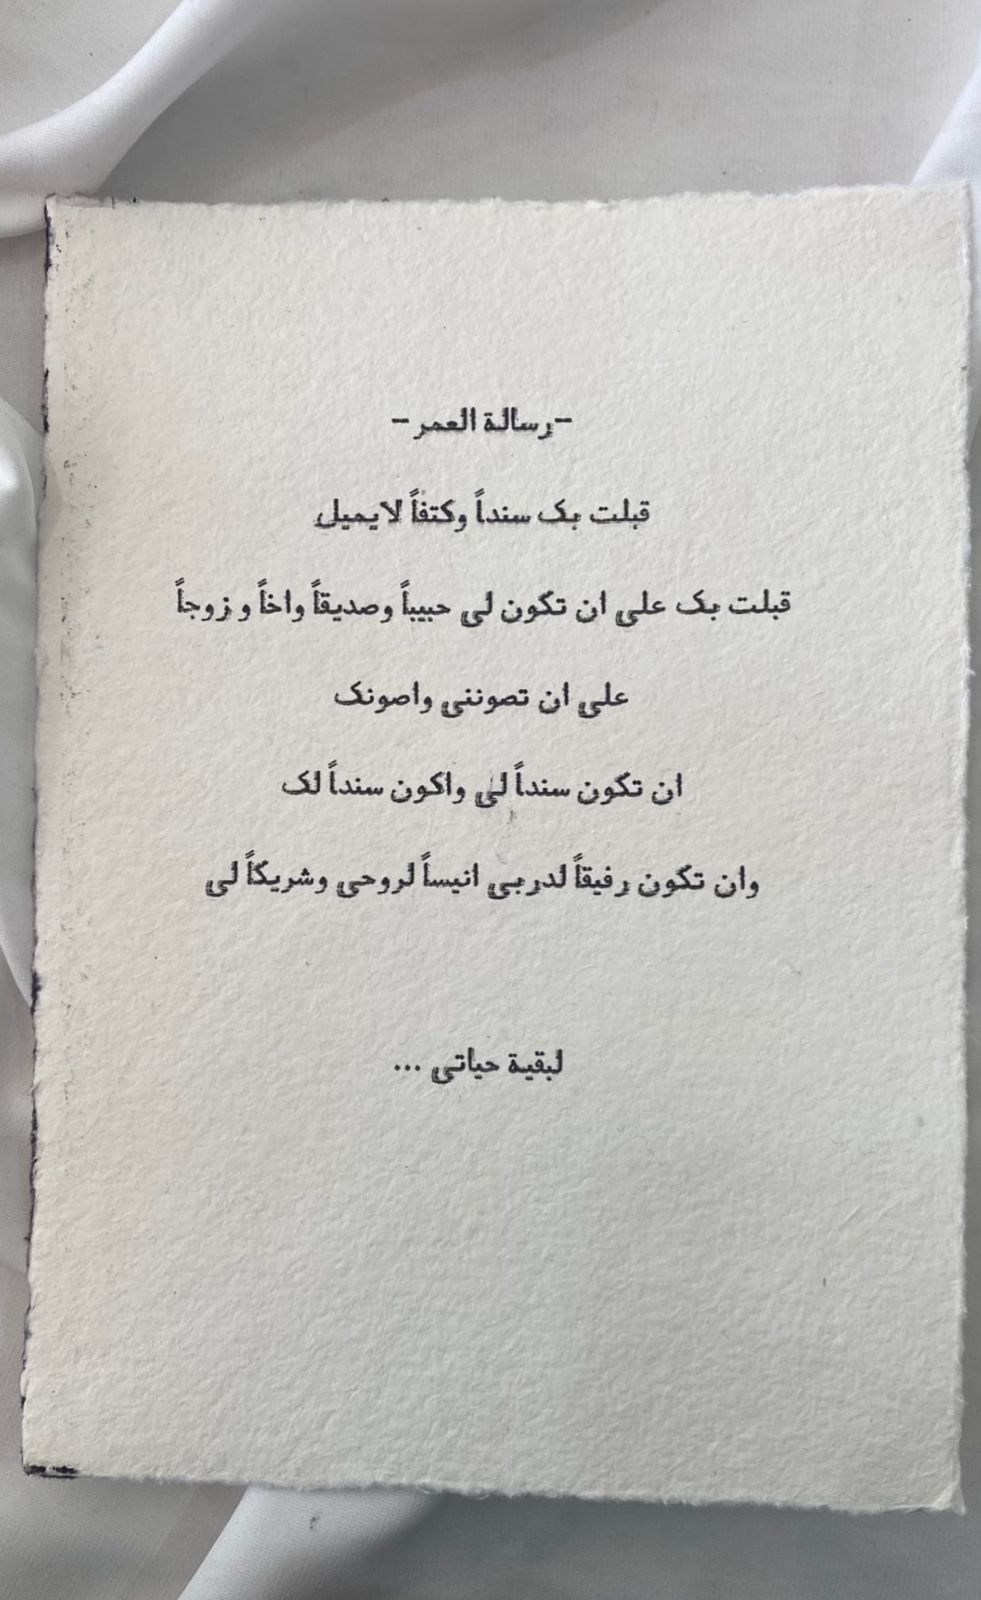 -رسالة العمر-
قبلت بک سنداً وكتفاً لايميل
قبلت بک على ان تكون لی حبيباً وصديقاً واخاً و زوجاً
علی ان تصوننی واصونک
ان تكون سنداً لی واكون سنداً لک
وان تكون رفيقاً لدربی انيساً لروحی وشريكاً لی
لبقية حياتی ...